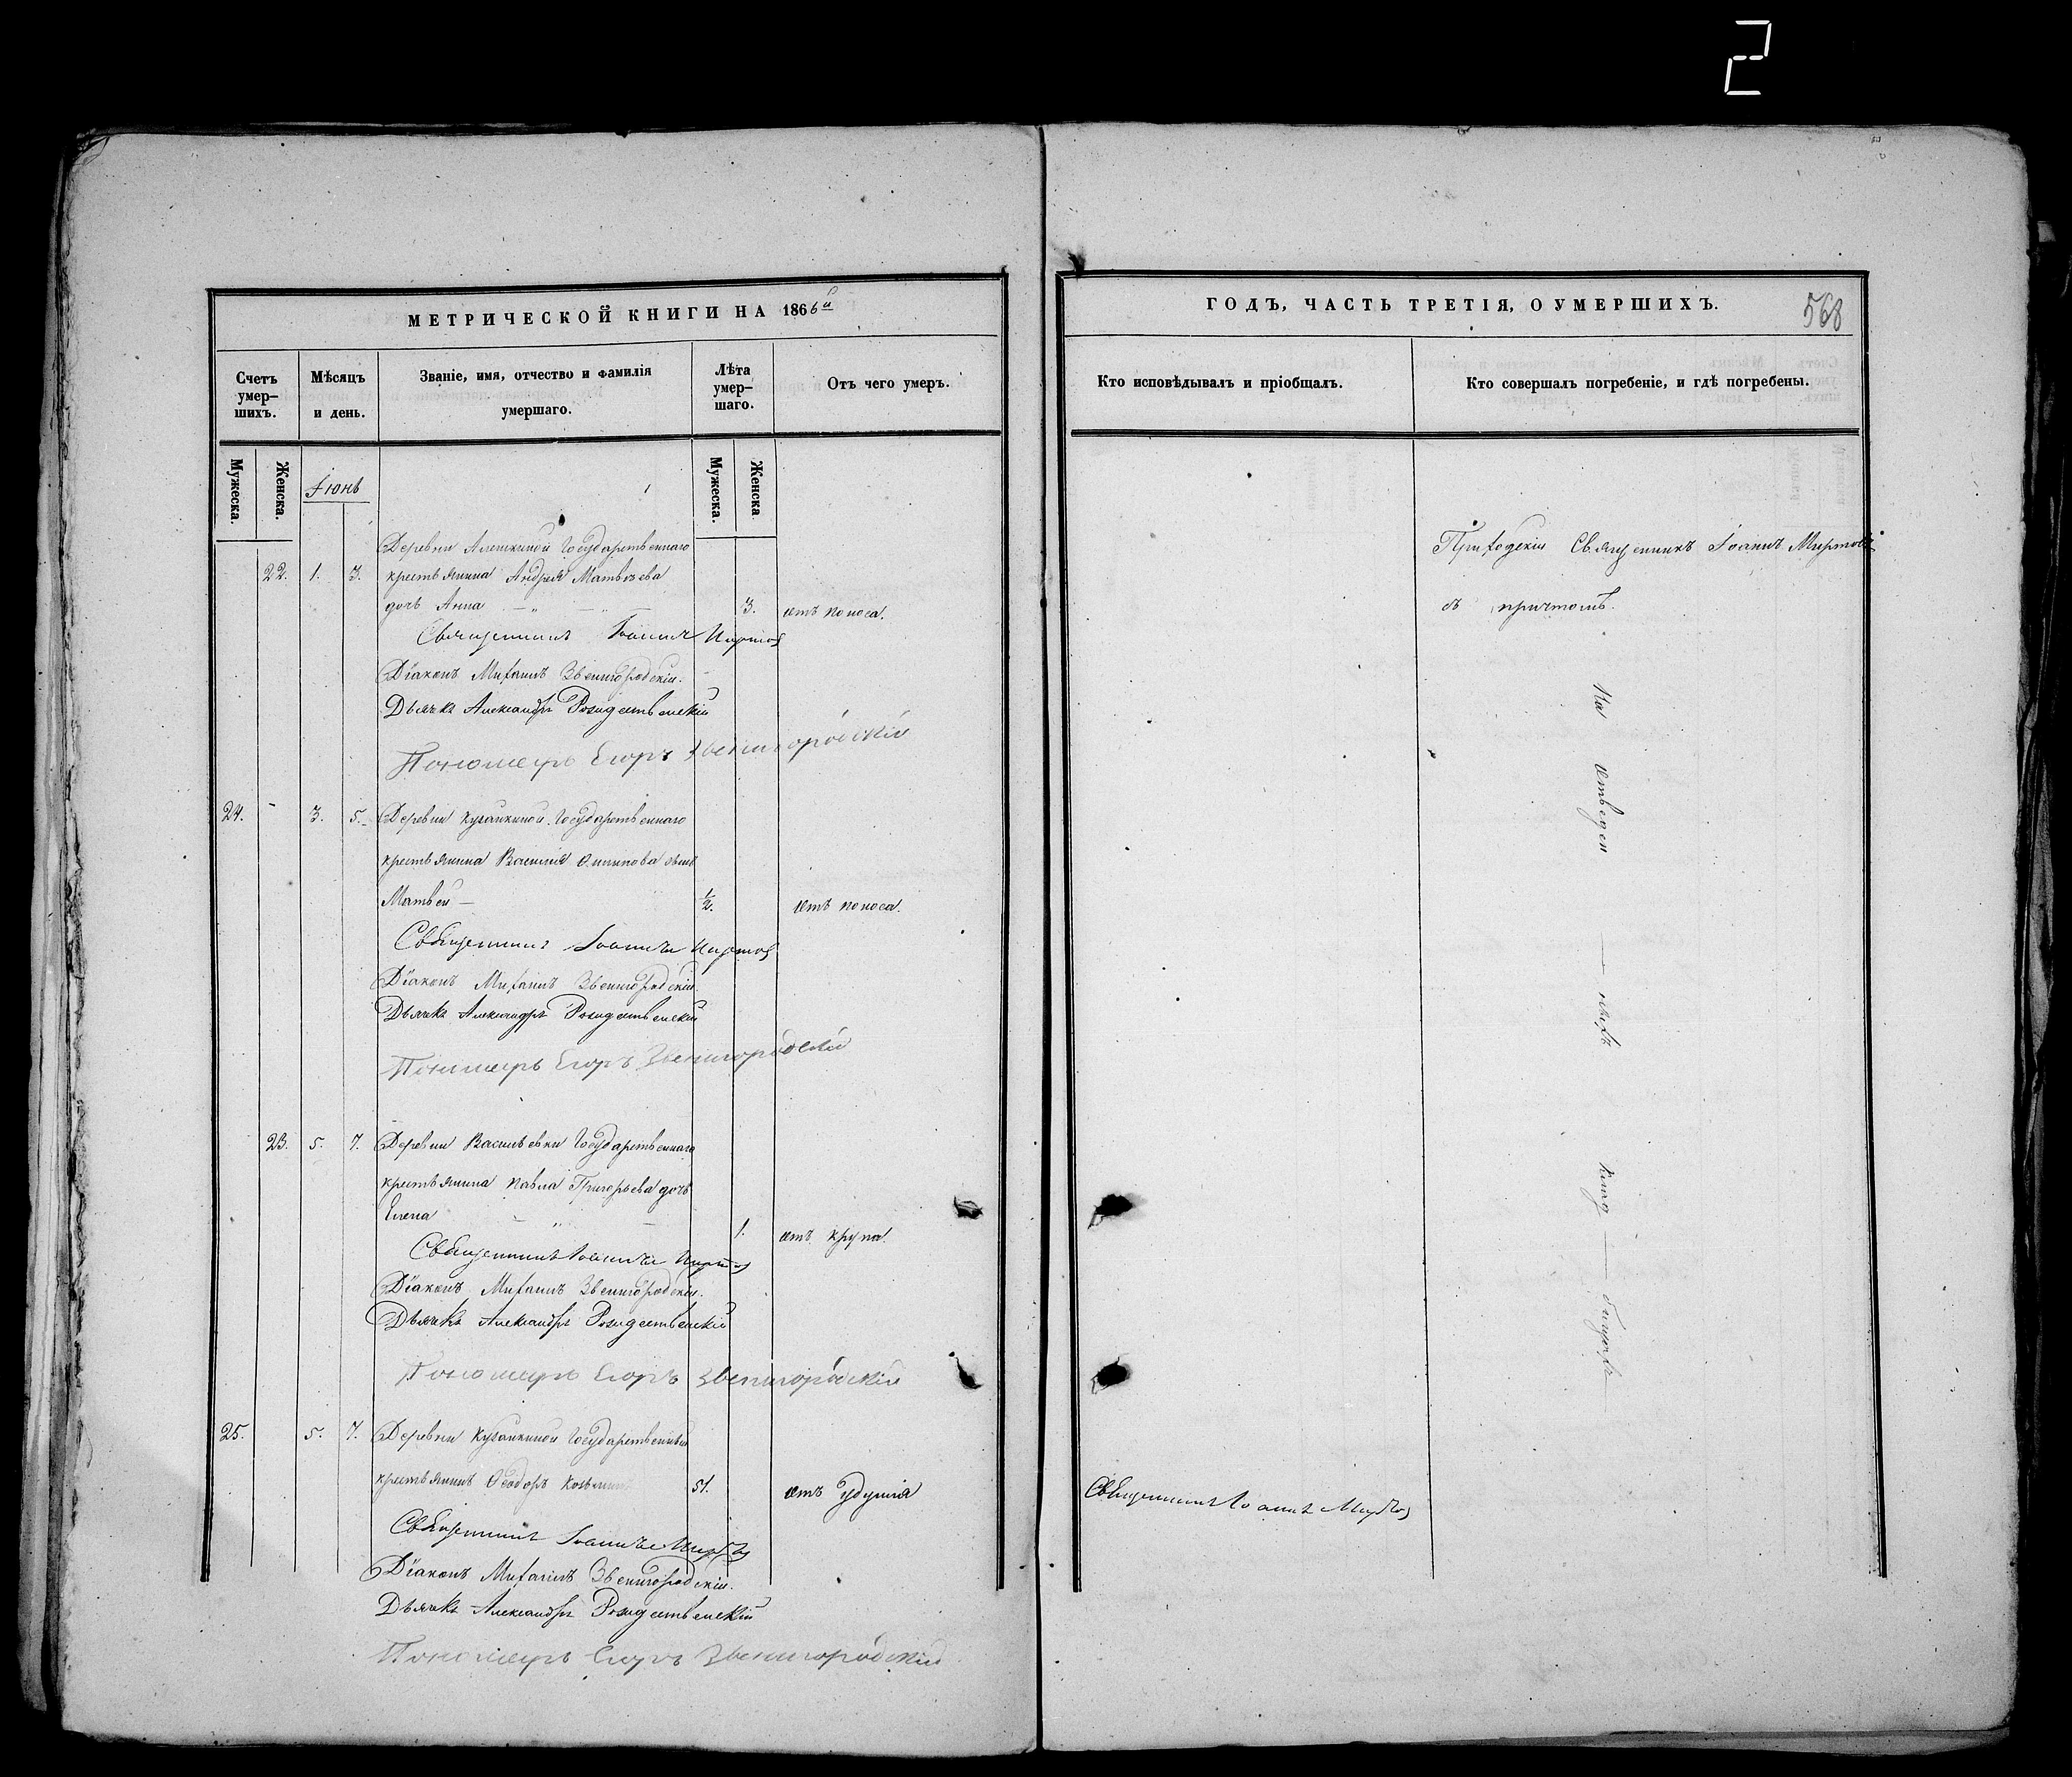 2
МЕТРИЧЕСКОЙ КНИГИ НА 1866й
Счетъ умер-шихъ.
Мѣсяцъ и день.
Званіе, имя, отчество и фамилія умершаго.
Лѣта умер-шаго.
Отъ чего умеръ.
Мужеска.
Женска.
Іюнь
Мужеска.
Женска
Деревни Алешкиной Государственнаго
22. 1. 3. крестьянина Андрея Матвѣева
дочь Анна 3. отъ поноса.
Священникъ Іоаннъ Миртовъ
Діаконъ Михаилъ Звенигородскій.
Дьячкъ Александръ Рождественскій
Пономарь Егоръ Звенигородскій
24. 3. 5. Деревни Государственнаго
крестьянина Василія сынъ
Матвей — 1/2. отъ поноса.
Священникъ Іоаннъ Миртовъ
Діаконъ Михаилъ Звенигородскій.
Дьячкъ Александръ Рождественскій
Пономарь Егоръ Звенигородскій
23. 5. 7. Деревни Васильевки Государственнаго
крестьянина Павла Григорьева дочь
Елена 1. отъ крупа.
Священникъ Іоаннъ Миртовъ
Діаконъ Михаилъ Звенигородскій.
Дьячкъ Александръ Рождественскій
Пономарь Егоръ Звенигородскій
25. 5. 7. Деревни Государственный
крестьянинъ Ѳеодоръ Козьминъ 51. отъ удушія
Священникъ Іоаннъ Миртовъ
Діаконъ Михаилъ Звенигородскій.
Дьячкъ Александръ Рождественскій
Пономарь Егоръ Звенигородскій
ГОДЪ, ЧАСТЬ ТРЕТІЯ, О УМЕРШИХЪ.
568
Кто исповѣдывалъ и пріобщалъ.
Кто совершалъ погребеніе, и гдѣ погребены.
Приходскій Священникъ Іоаннъ Миртовъ
съ причтомъ.
На отведен — ныхъ клад — бищахъ —
Священникъ Іоаннъ Миртовъ